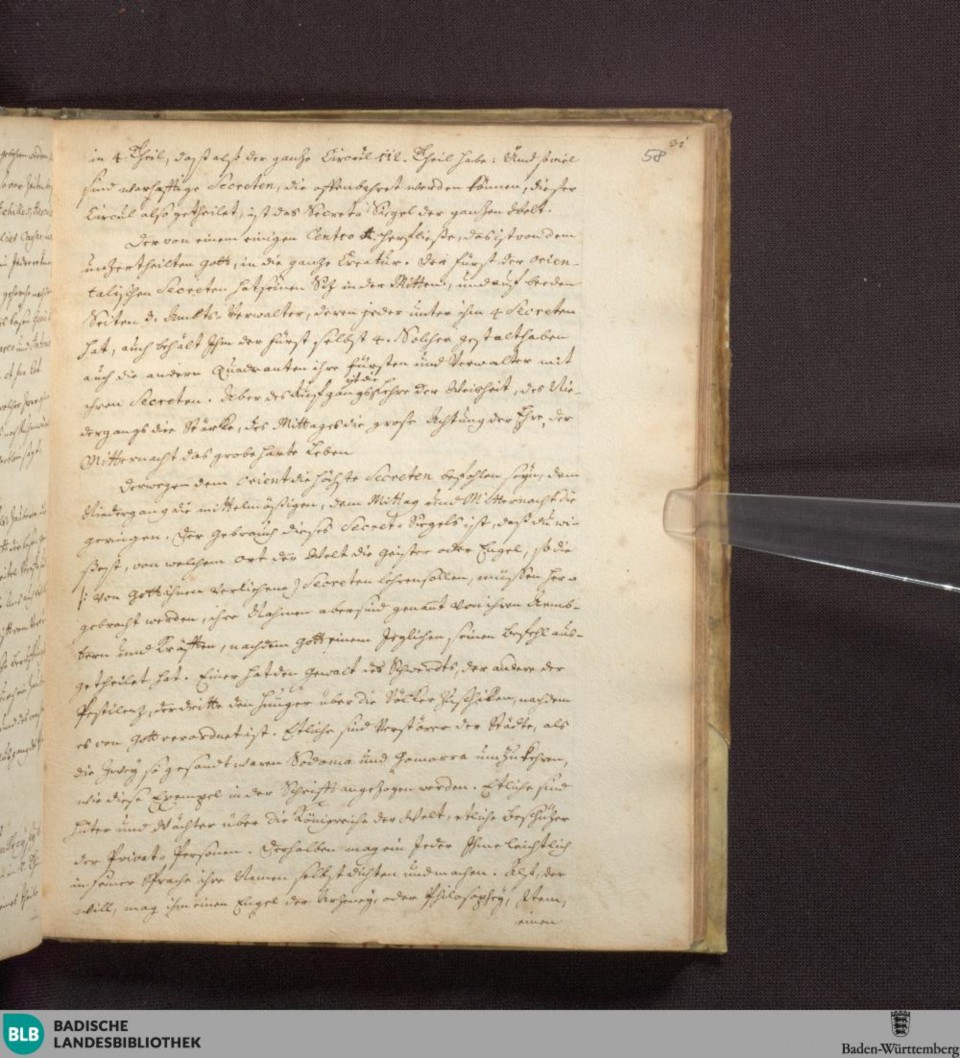 58
in 4 Theil, daß also der gantze Circul 112. Theil habe: Und so viel
sind warhafftige Secreten, die offenbahret werden können, dieser
Circul also getheilet, ist das Secrets Siegel der gantzen Welt.
Der von einem einigen Centro herfließe, das ist von dem
unzertheilten Gott, in die gantze Creatur. Der Fürst der orien-
talischen Secreten hat seinen Sitz in der Mitten, und auf beeden
Seiten 3. Ambts-Verwalter, deren jeder unter ihm 4 Secreten
hat, auch behält Ihm der Fürst selbst 4. Solcher gestalt haben
auch die andern Quadranten ihre Fürsten und Verwalter mit
ihren Secreten. Aber des Aufgangs ist die Lehre der Weisheit, des Nie-
dergangs die Stärke, des Mittages die große Achtung der Ehre, der
Mitternacht das grobe harte Leben
Derwegen dem Orient die höchste Secreten befohlen seyn, dem
Niedergang die mittelmäßigen, dem Mittag und Mitternacht die
geringen. Der Gebrauch dieses Secrets Siegels ist, daß du wi-
ßest, von welchem Ort der Welt die Geister oder Engel, so die
von Gott ihnen verliehene Secreten lehren sollen, müssen her-
gebracht werden, ihre Nahmen aber sind genant von ihren Aemb-
tern und Kräfften, nachdem Gott einem Jeglichen seinen Befehl aus-
getheilet hat. Einer hat den Gewalt des Schwerdts, der andere der
Pestilenz, der dritte den Hunger über die Völker zu schiken, nachdem
es von Gott verordnet ist. Etliche sind Verstörer der Städte, als
die Zwey so gesandt waren Sodoma und Gomorra umzukehren,
wie diese Exempel in der Schrifft angezogen werden. Etliche sind
Hüter und Wächter über die Königreiche der Welt, etliche Beschützer
der Privat-Personen. Derhalben mag ein Jeder Ihme leichtlich
in seiner Sprache ihre Namen selbst dichten und machen. Also, der
will, mag ihm einen Engel der Artzney, oder Philosophey, Item,
einen
BLB
BADISCHE
LANDESBIBLIOTHEK
Baden-Württemberg